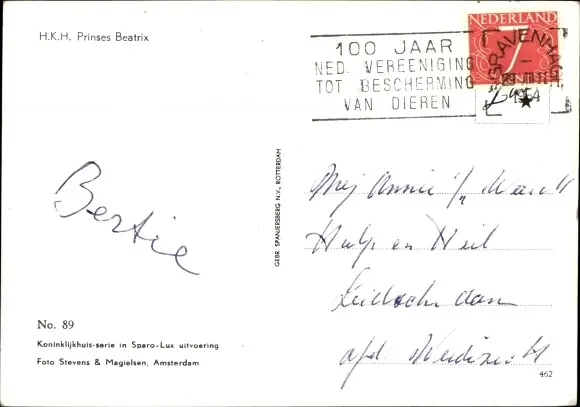 H.K.H. Prinses Beatrix
NEDERLAND
7
'S GRAVENHAG
1964
100 JAAR
NED. VEREENIGING
TOT BESCHERMING
VAN DIEREN
Bertie
GEBR. SPANJERSBERG N.V., ROTTERDAM
Mej Annie
Hulp en Heil
Leidschendam
afd.
No. 89
Koninklijkhuis-serie in Sparo-Lux uitvoering
Foto Stevens & Magielsen, Amsterdam
462